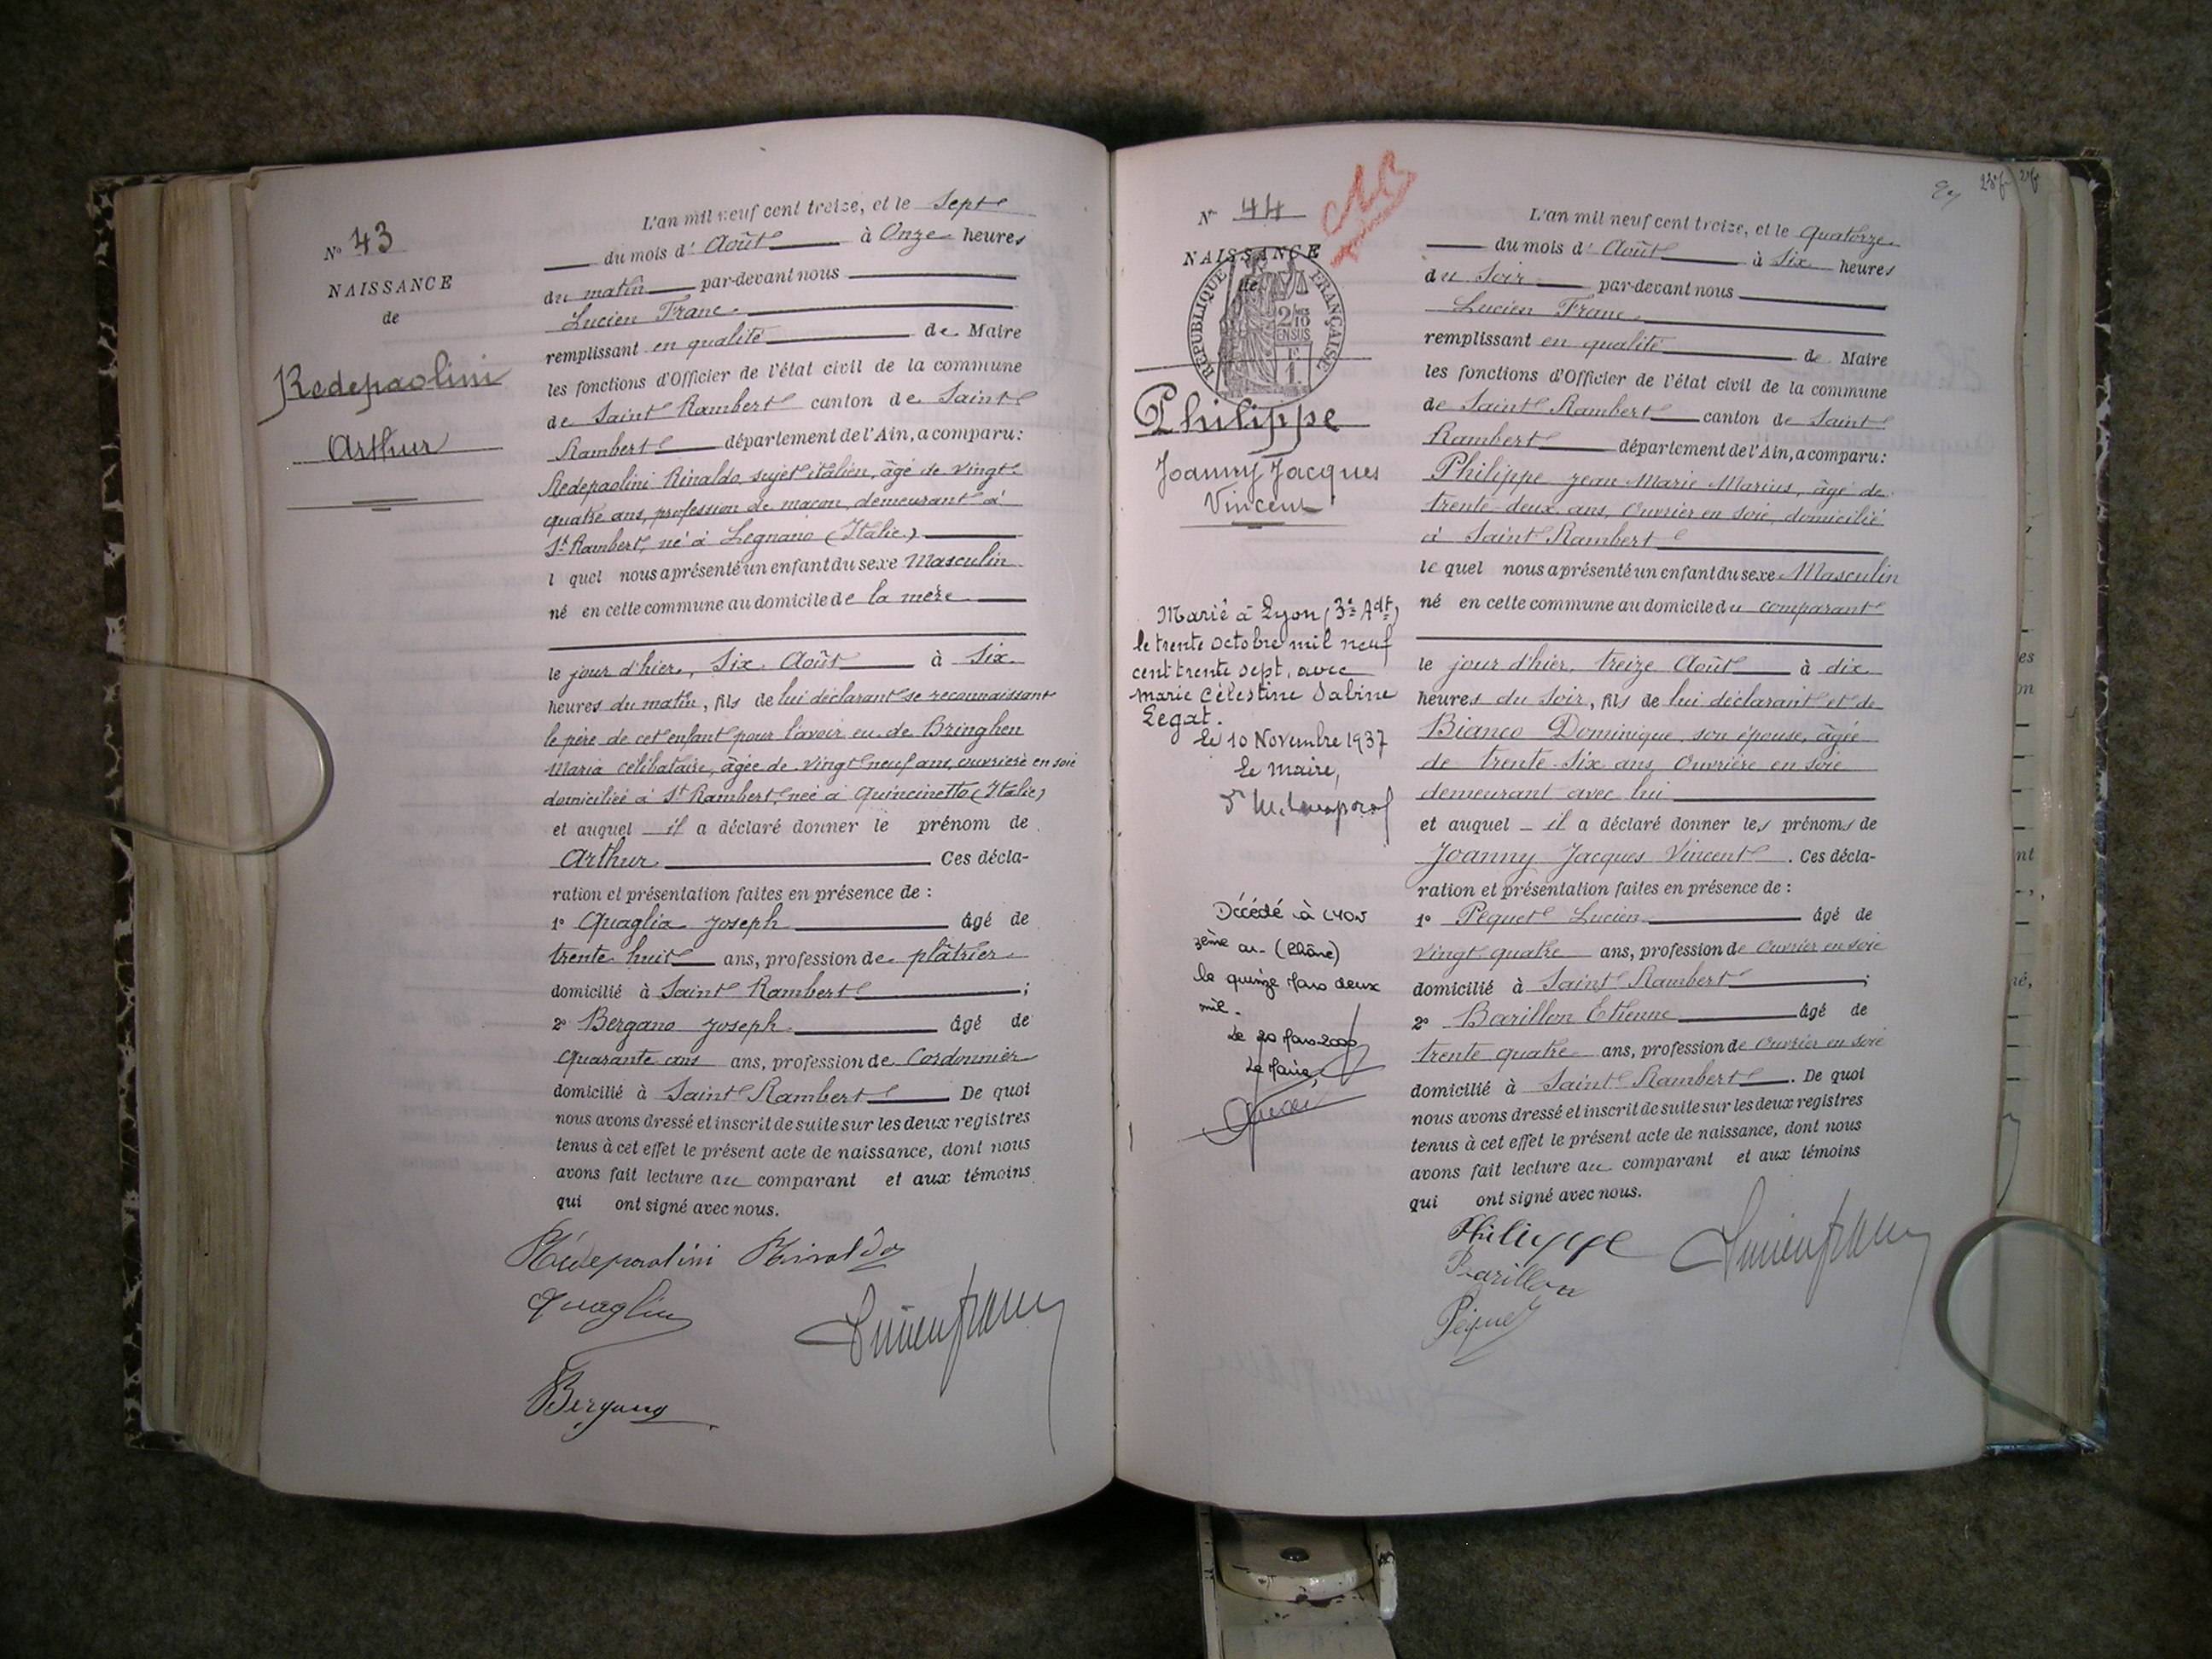 Nº 43
NAISSANCE
de
Redepaolini
Arthur
L'an mil neuf cent treize, et le Sept
du mois d'Août à Onze heures
du matin par-devant nous
Lucien Franc
remplissant en qualité de Maire
les fonctions d'Officier de l'état civil de la commune
de Saint Rambert canton de Saint
Rambert département de l'Ain, a comparu :
Redepaolini Rinaldo, sujet italien, âgé de vingt
quatre ans, profession de maçon, demeurant à
St Rambert, né à Legnano (Italie)
l quel nous a présenté un enfant du sexe Masculin
né en cette commune au domicile de la mère
le jour d'hier, Six Août à Six
heures du matin, fils de lui déclarant se reconnaissant
le père de cet enfant pour l'avoir eu de Bringhen
Maria célibataire, âgée de vingt neuf ans, ouvrière en soie
domiciliée à St Rambert, née à Quincinetto (Italie)
et auquel il a déclaré donner le prénom de
Arthur Ces décla-
ration et présentation faites en présence de :
1º Quaglia Joseph âgé de
trente huit ans, profession de plâtrier
domicilié à Saint Rambert ;
2º Bergano Joseph âgé de
Quarante ans ans, profession de Cordonnier
domicilié à Saint Rambert De quoi
nous avons dressé et inscrit de suite sur les deux registres
tenus à cet effet le présent acte de naissance, dont nous
avons fait lecture au comparant et aux témoins
qui ont signé avec nous.
Rédepaolini Rinaldo
Quaglia
Lucien Franc
Bergano
Nº 44
NAISSANCE
de
REPUBLIQUE FRANÇAISE
2/10
EN SUS
Philippe
Joanny Jacques
Vincent
Marié à Lyon (3e Adt)
le trente octobre mil neuf
cent trente sept, avec
Marie Célestine Sabine
Legat.
Le 10 Novembre 1937
Le Maire,
Décédé à LYON
3ème ar. (Rhône)
le quinze Mars deux
mil.
Le 20 Mars 2000
Le Maire,
L'an mil neuf cent treize, et le Quatorze
du mois d'Août à Six heures
du Soir par-devant nous
Lucien Franc
remplissant en qualité de Maire
les fonctions d'Officier de l'état civil de la commune
de Saint Rambert canton de Saint
Rambert département de l'Ain, a comparu :
Philippe Jean Marie Marius, âgé de
trente-deux ans, Ouvrier en soie, domicilié
à Saint Rambert
le quel nous a présenté un enfant du sexe Masculin
né en cette commune au domicile du comparant
le jour d'hier, treize Août à dix
heures du Soir, fils de lui déclarant et de
Bianco Dominique, son épouse, âgée
de trente-Six ans, Ouvrière en soie
demeurant avec lui
et auquel il a déclaré donner les prénoms de
Joanny Jacques Vincent . Ces décla-
ration et présentation faites en présence de :
1º Péquet Lucien âgé de
vingt quatre ans, profession de Ouvrier en soie
domicilié à Saint Rambert ;
2º Barillon Etienne âgé de
trente quatre ans, profession de Ouvrier en soie
domicilié à Saint Rambert . De quoi
nous avons dressé et inscrit de suite sur les deux registres
tenus à cet effet le présent acte de naissance, dont nous
avons fait lecture au comparant et aux témoins
qui ont signé avec nous.
Philippe
Lucien Franc
Barillon
Péquet